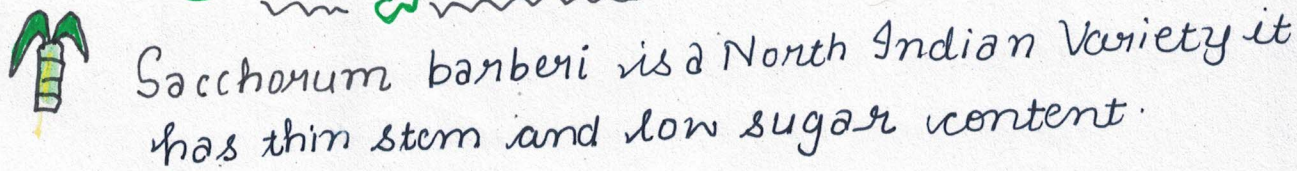 Sacchorum barberi is a North Indian Variety it
has thin stem and low sugar content.